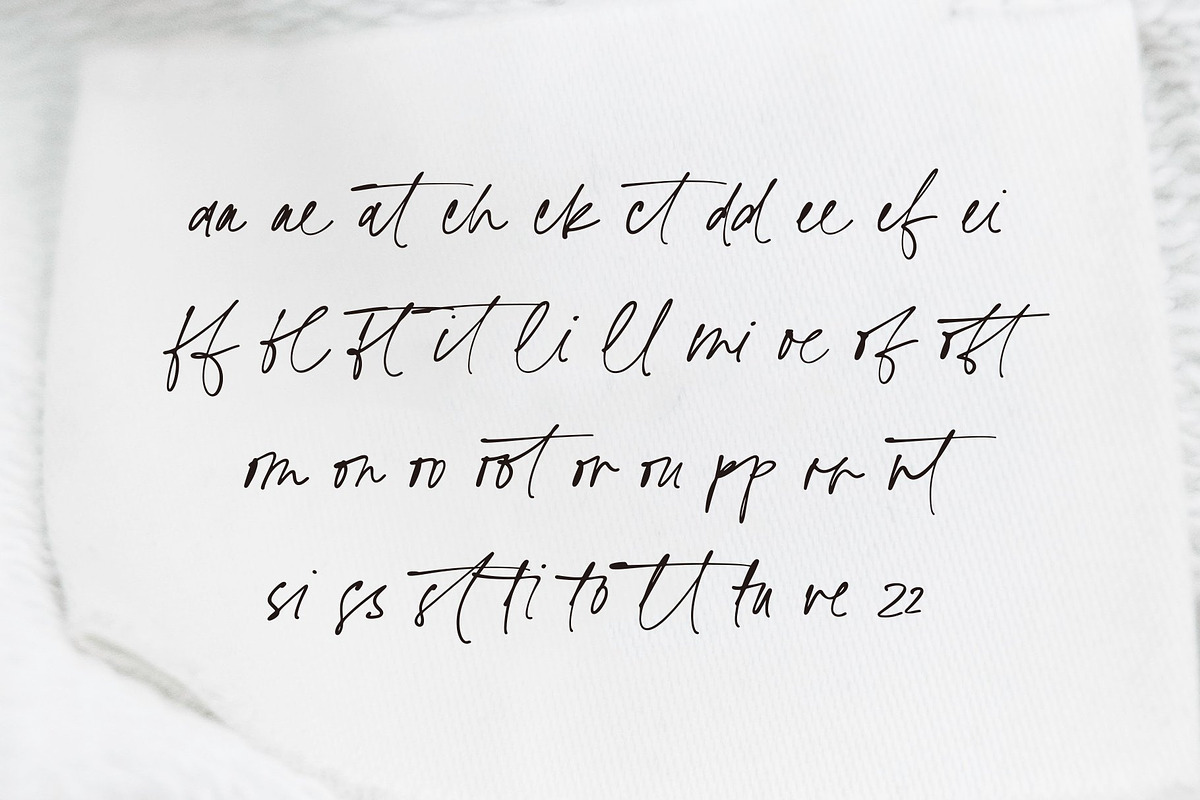 aa ae at ch ck ct dd ee ef ei
ff fl ft it li ll mi oe of oft
om on oo oot or ou pp rr rt
si ss st ti to tt tu ve zz